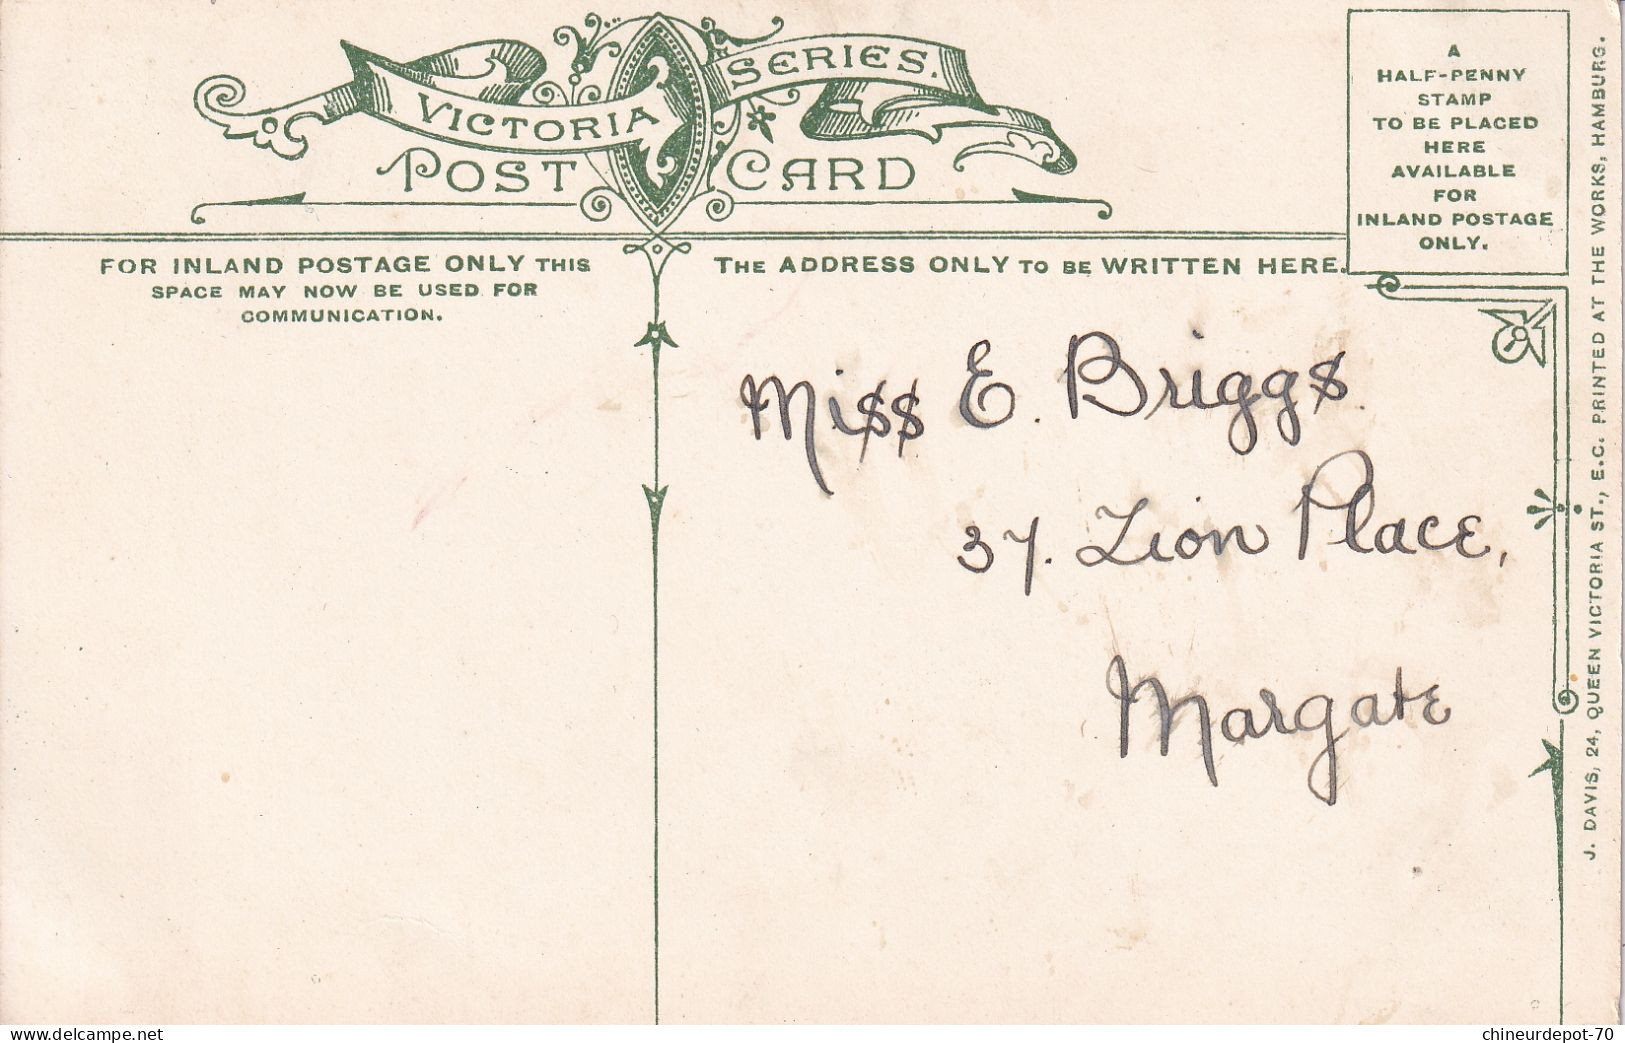 VICTORIA SERIES.
POST CARD
A
HALF-PENNY
STAMP
TO BE PLACED
HERE
AVAILABLE
FOR
INLAND POSTAGE
ONLY.
FOR INLAND POSTAGE ONLY THIS
SPACE MAY NOW BE USED FOR
COMMUNICATION.
THE ADDRESS ONLY TO BE WRITTEN HERE.
Miss E. Briggs
37. Lion Place,
Margate
J. DAVIS, 24, QUEEN VICTORIA ST., E.C. PRINTED AT THE WORKS, HAMBURG.
delcampe.net
chineurdepot-70